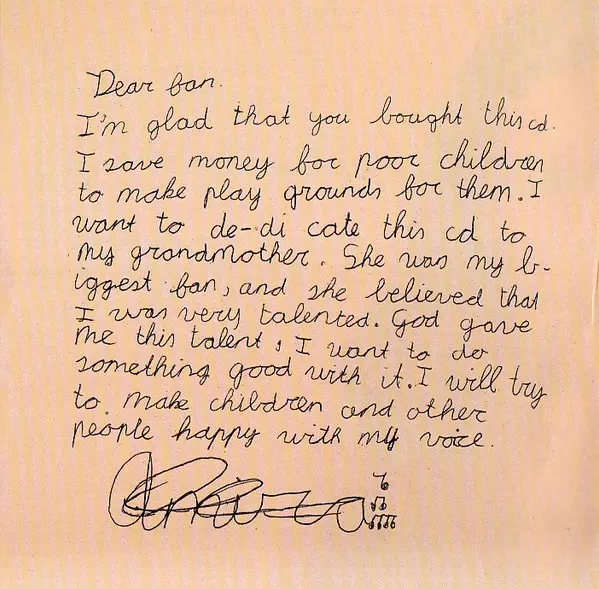 Dear fan.
I'm glad that you bought this cd.
I save money for poor children
to make play grounds for them. I
want to de-di cate this cd to
my grandmother. She was my b-
iggest fan, and she believed that
I was very talented. God gave
me this talent, I want to do
something good with it. I will try
to make children and other
people happy with my voice.
Amira